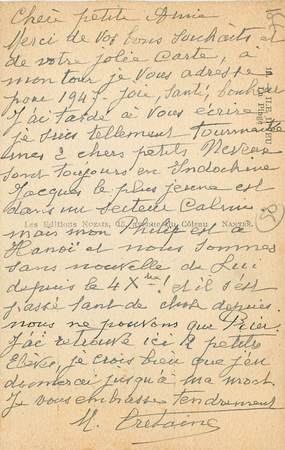 Chère petite Amie
Merci de vos bons souhaits et
de votre jolie carte, à
mon tour je vous adresse
pour 1947. Joie, santé, bonheur
J'ai tardé à vous écrire
je suis tellement tourmentée
mes 2 chers petits Neveux
sont toujours en Indochine
Jacques le plus jeune est
dans un secteur Calme
mais mon est
Hanoï et nous sommes
sans nouvelle de Lui
depuis le 4 Xbre! et il s'est
passé tant de chose depuis.
nous ne pouvons que Prier.
J'ai retrouvé ici 2 petits
élèves, je crois bien que j'en
donnerai jusqu'à ma mort.
Je vous embrasse tendrement
M.
ILE D'YEU
La Plage
Les Editions Nozais, Nantes